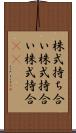 株式持ち合
い株式持合
い株式持合